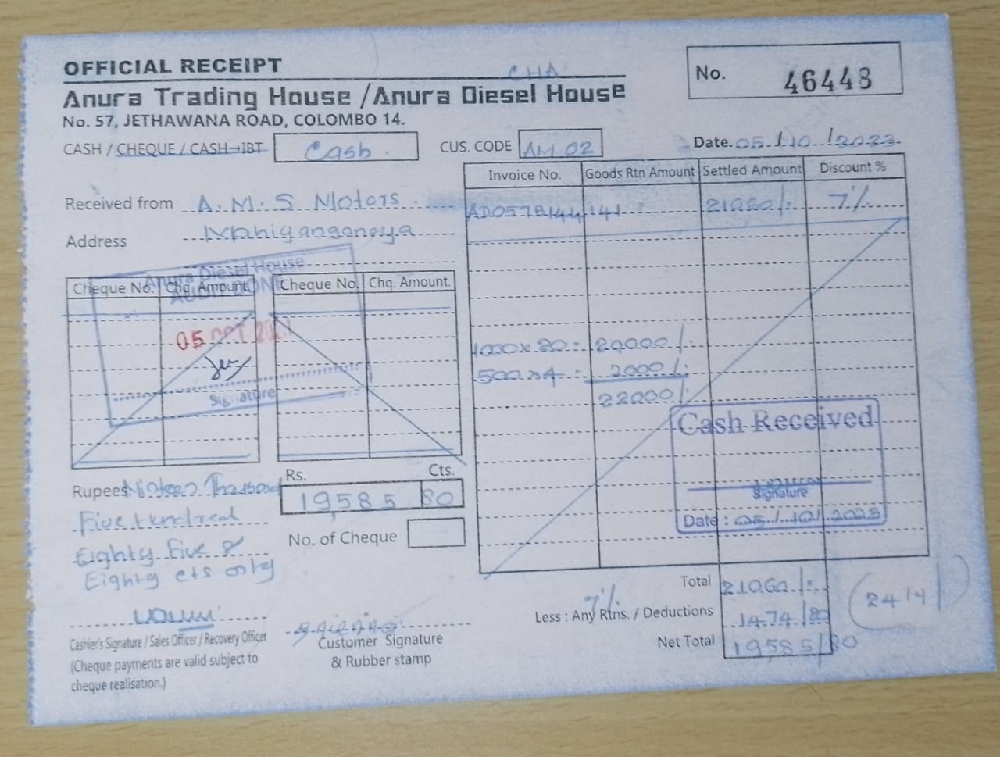 OFFICIAL RECEIPT
CHA
No. 46448
Anura Trading House /Anura Diesel House
No. 57, JETHAWANA ROAD, COLOMBO 14.
CASH / CHEQUE / CASH-IBT Cash CUS. CODE AM 02 Date. 05/10/2023
Received from A.M.S Motors
Address
Invoice No. Goods Rtn Amount Settled Amount Discount %
141 21060/- 7%
Anura Diesel House
Cheque No. Chq. Amount Cheque No. Chq. Amount.
05 OCT
Signature
1000 x 20 = 20000/-
500 x 4 = 2000/-
22000/-
Cash Received
Signature
Date : 05/10/2023
Rs. Cts.
Rupees Thousand
19585 80
Five Hundred
Eighty Five &
Eighty cts only
No. of Cheque
Total 21060/-
(2414)
7%
Less : Any Rtns. / Deductions 1474/20
Net Total 19585/80
Cashier's Signature / Sales Officer / Recovery Officer
Customer Signature
& Rubber stamp
(Cheque payments are valid subject to
cheque realisation.)